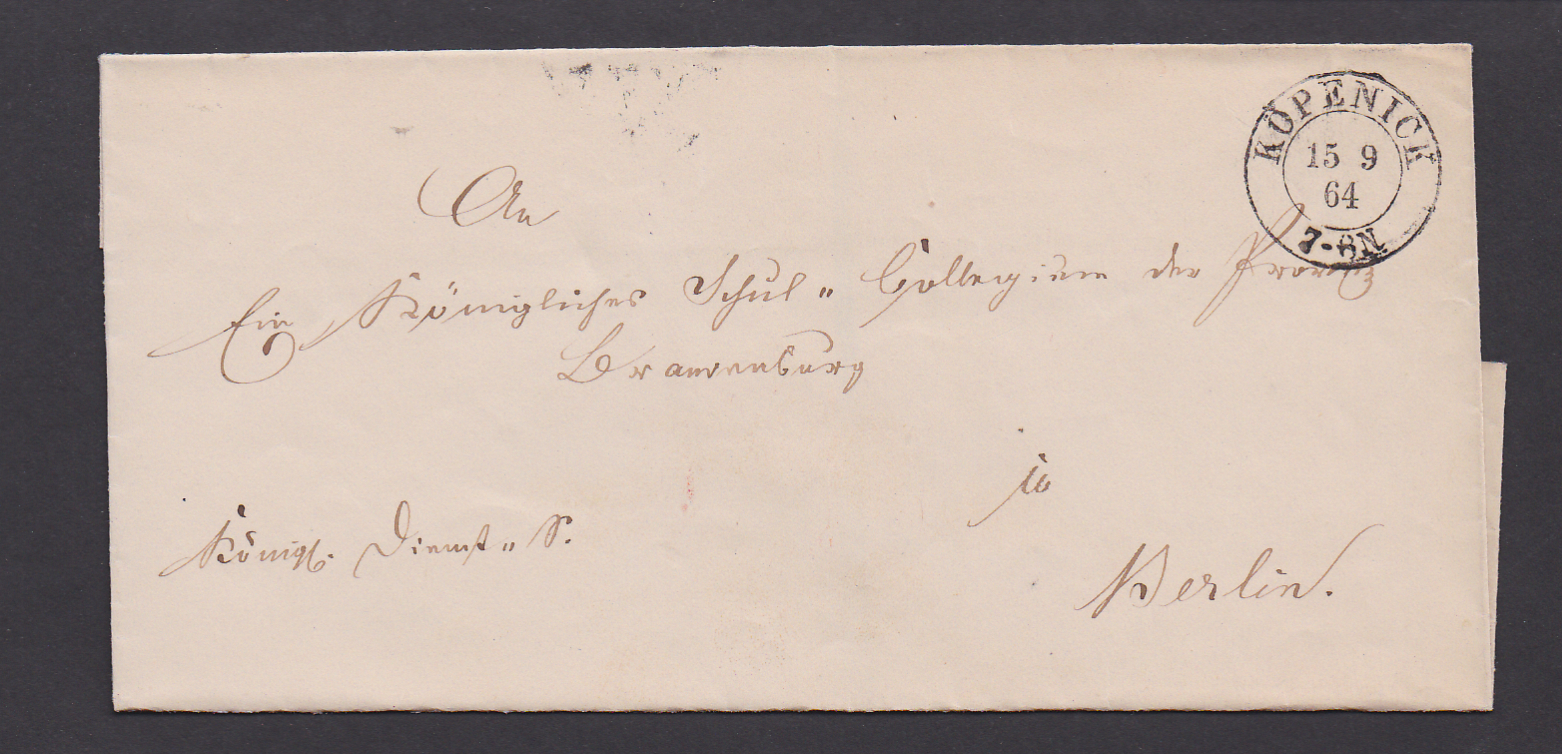 KÖPENICK
15 9
64
7-8N
An
Ein Königliches Schul„ Collegium der Provinz
Brandenburg
zu
Königl. Dienst„ S.
Berlin.